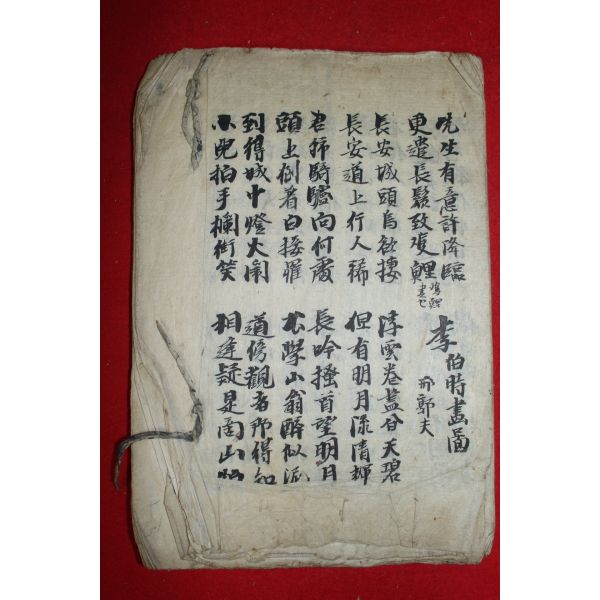 先生有意許降臨
更遣長鬚致双鯉 雙鯉書也
李伯時畵圖
邢郭夫
長安城頭烏欲棲 浮雲卷盡谷天碧
長安道上行人稀 但有明月流清輝
君獨騎驢向何處 長吟搔首望明月
頭上倒着白接罹 不學山翁醉似泥
到得城中燈火閙 道傍觀者那得知
小児拍手攔街笑 相逢疑是商山皓